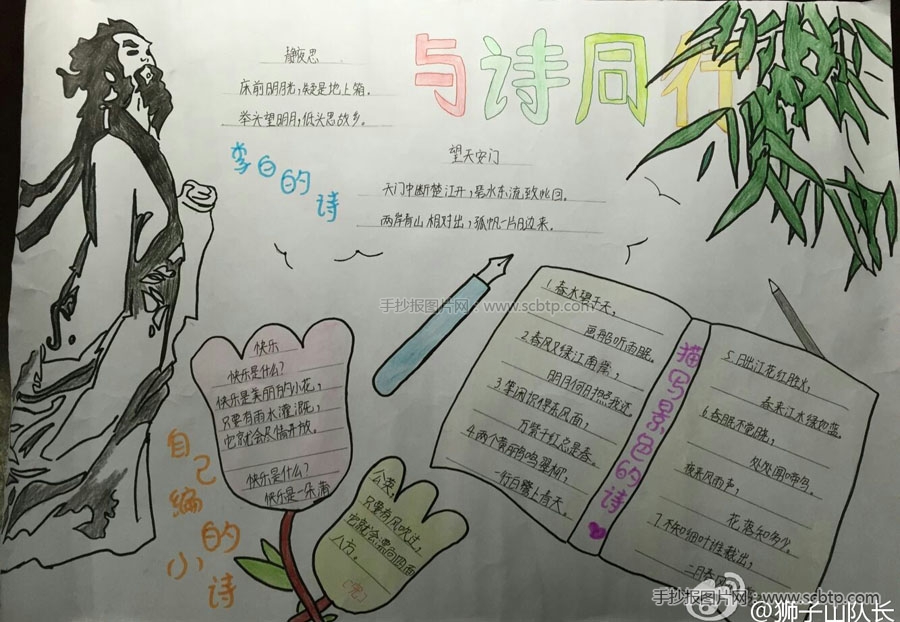 与诗同行
静夜思
床前明月光,疑是地上箱。
举头望明月,低头思故乡。
李白的诗
望天安门
天门中断楚江开,碧水东流致此回。
两岸青山相对出,孤帆一片日边来。
手抄报图片网:www.scbtp.com
快乐
快乐是什么?
快乐是美丽的小花,
只要有雨水灌溉,
它就会尽情开放。
快乐是什么?
快乐是一朵蒲
公英,
只要有风吹过,
它就会飘向四面
八方。
(完)
自己编的小诗
1.春水碧于天,
画船听雨眠。
2.春风又绿江南岸,
明月何时照我还。
3.等闲识得东风面,
万紫千红总是春。
4.两个黄鹂鸣翠柳,
一行白鹭上青天。
描写景色的诗
5.日出江花红胜火,
春来江水绿如蓝。
6.春眠不觉晓,
处处闻啼鸟。
夜来风雨声,
花落知多少。
7.不知细叶谁裁出,
二月春风
手抄报图片网:www.scbtp.com
@狮子山队长